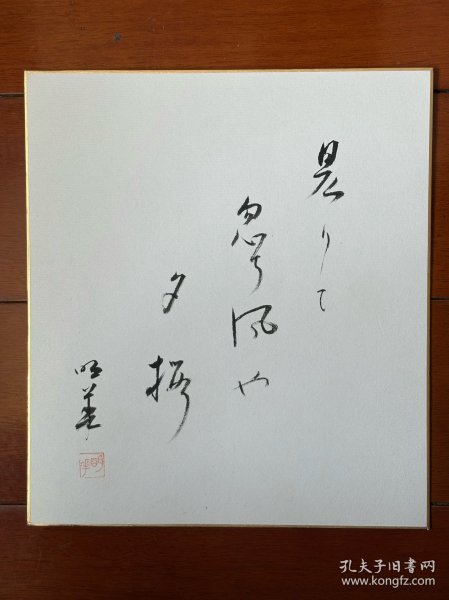 昃りて
忽ち風や
夕桜
孔夫子旧书网
www.kongfz.com